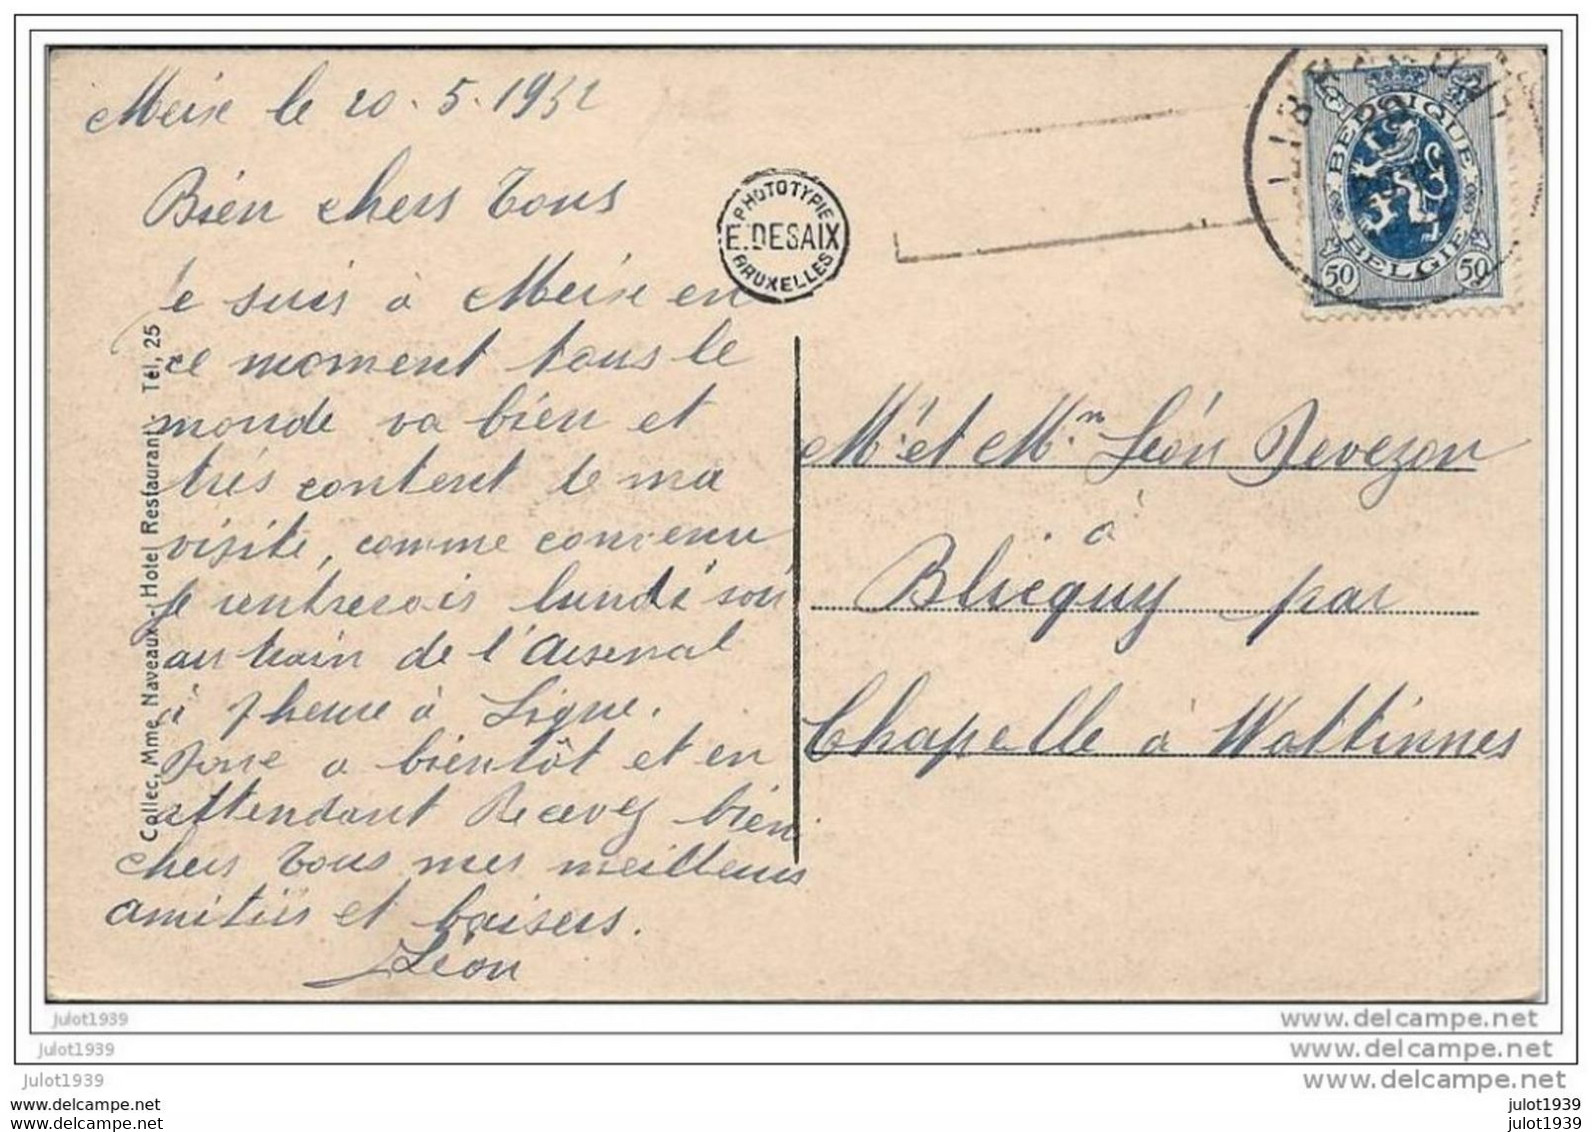 Meix le 20.5.1932
Bien chers Tous
Je suis à Meix en
ce moment tous le
monde va bien et
très content de ma
visite, comme convenu
je rentrerais lundi soir
au train de l'Arsenal
à 7 heure à Ligne.
Donc a bientôt et en
attendant Recevez bien
chers Tous mes meilleurs
amitiés et baisers.
Léon
PHOTOTYPIE
E. DESAIX
BRUXELLES
Collec, Mme Naveaux, Hotel Restaurant, Tél, 25
LIBRAMONT
BELGIQUE
BELGIE
50c 50c
Mr et Mm Léon Devezon
à
Blicquy par
Chapelle à Wattinnes
julot1939
www.delcampe.net
julot1939
www.delcampe.net
julot1939
www.delcampe.net
www.delcampe.net
julot1939
www.delcampe.net
julot1939